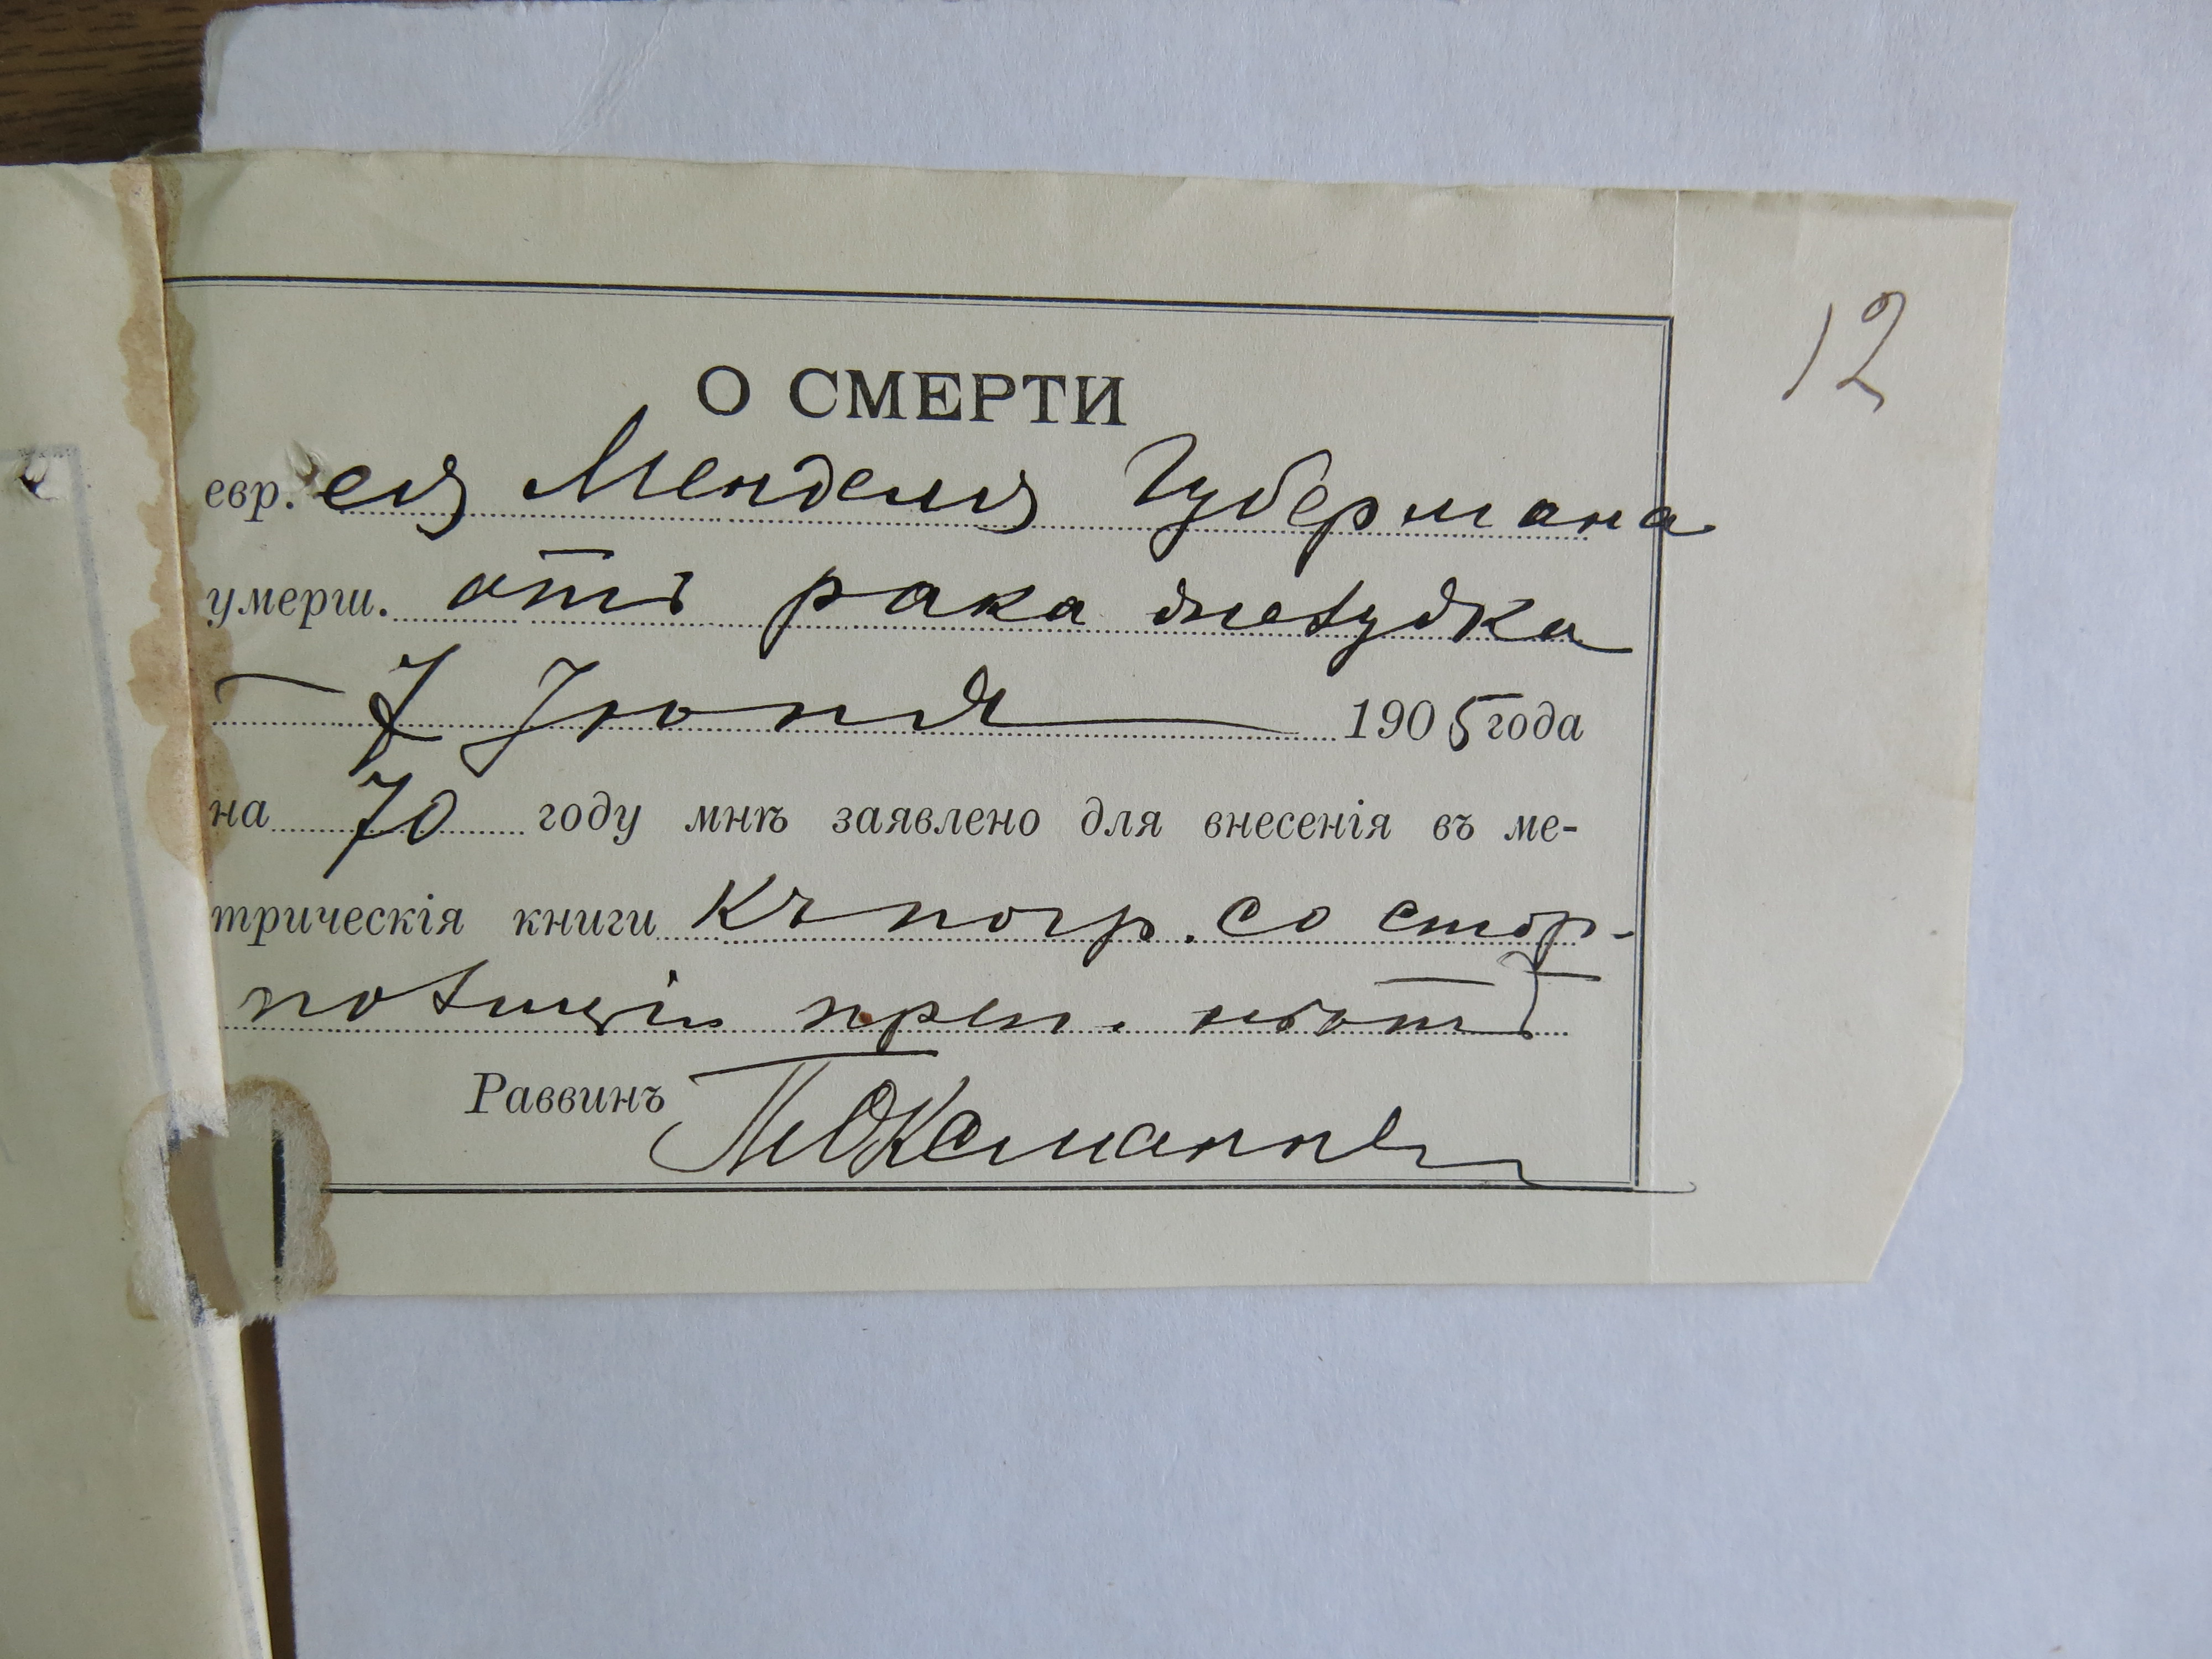 12
О СМЕРТИ
евр. ея Менделя Губермана
умерш. отъ рака желудка
7 Іюня 1905 года
на 70 году мнѣ заявлено для внесенія въ ме-
трическія книги Къ погр. со стор.
полиціи преп. нѣтъ
Раввинъ